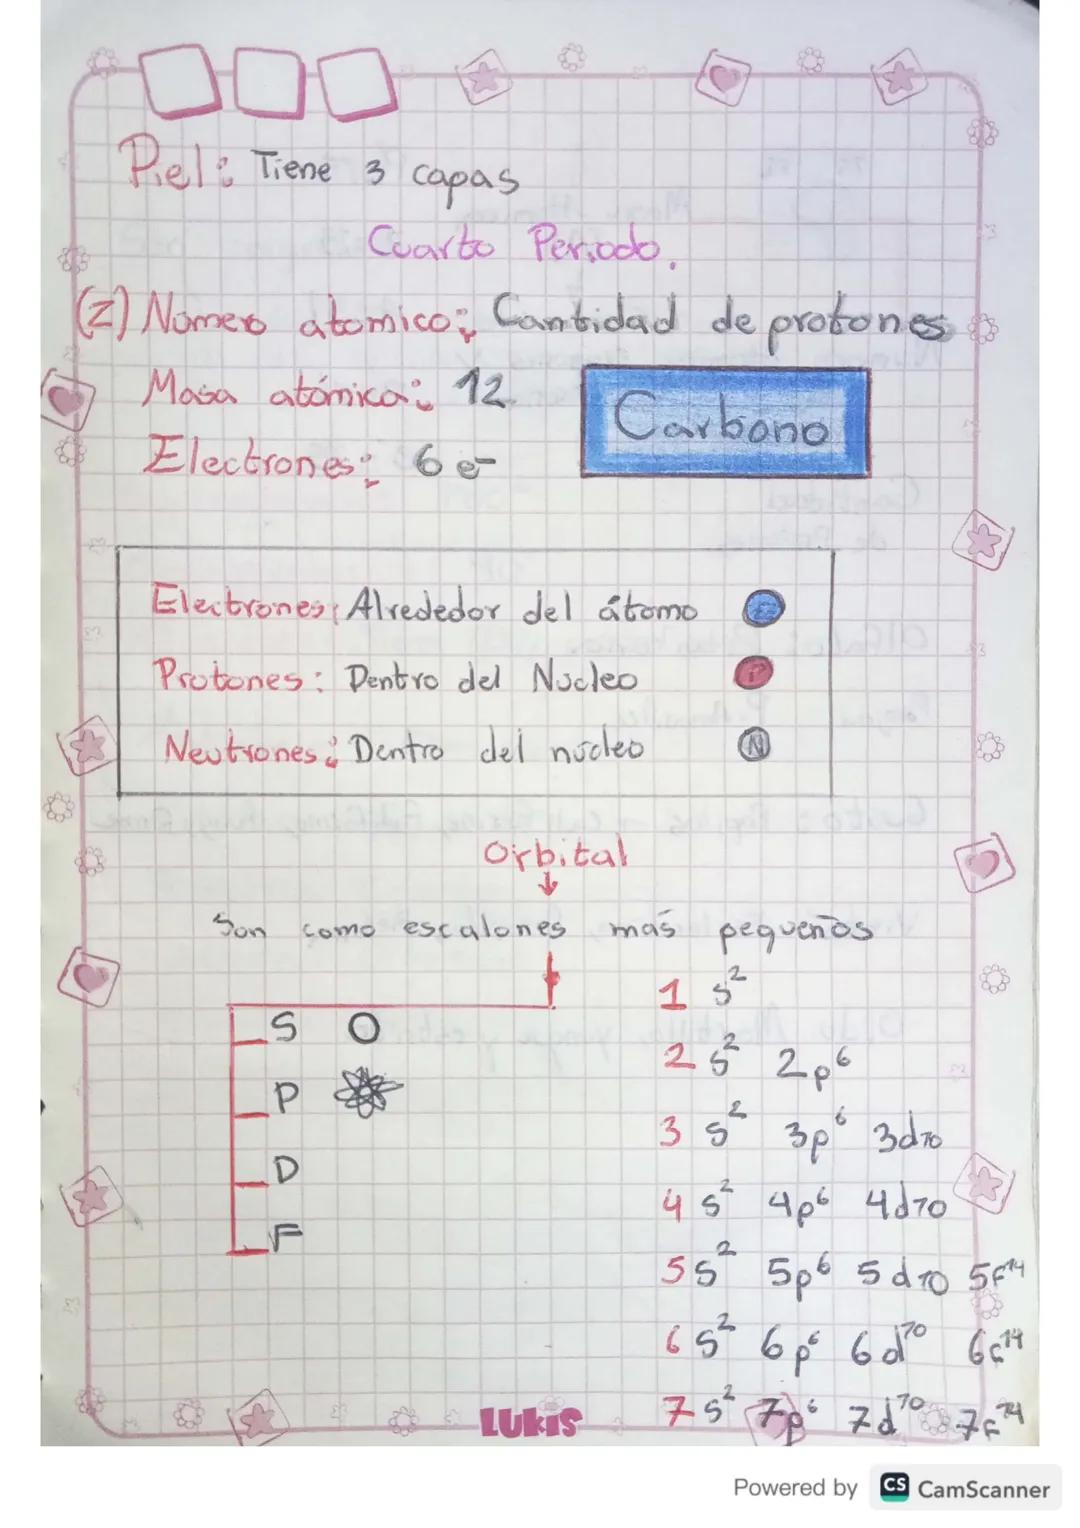 Piel: Tiene 3 capas
Cuarto Periodo.
(Z) Número atomico: Cantidad de protones
Masa atómica: 12
Carbono
Electrones: 6 e-
Electrones: Alrededor del átomo E
Protones: Dentro del Nucleo P
Neutrones: Dentro del nucleo N
Orbital
Son como escalones mas pequeños
1 s²
S O
2 s² 2p⁶
P
3 s² 3p⁶ 3d10
D
4 s² 4p⁶ 4d10
F
5 s² 5p⁶ 5d10 5f¹⁴
6 s² 6p⁶ 6d¹⁰ 6f¹⁴
7 s² 7p⁶ 7d¹⁰ 7f¹⁴
LUKIS
Powered by CS CamScanner